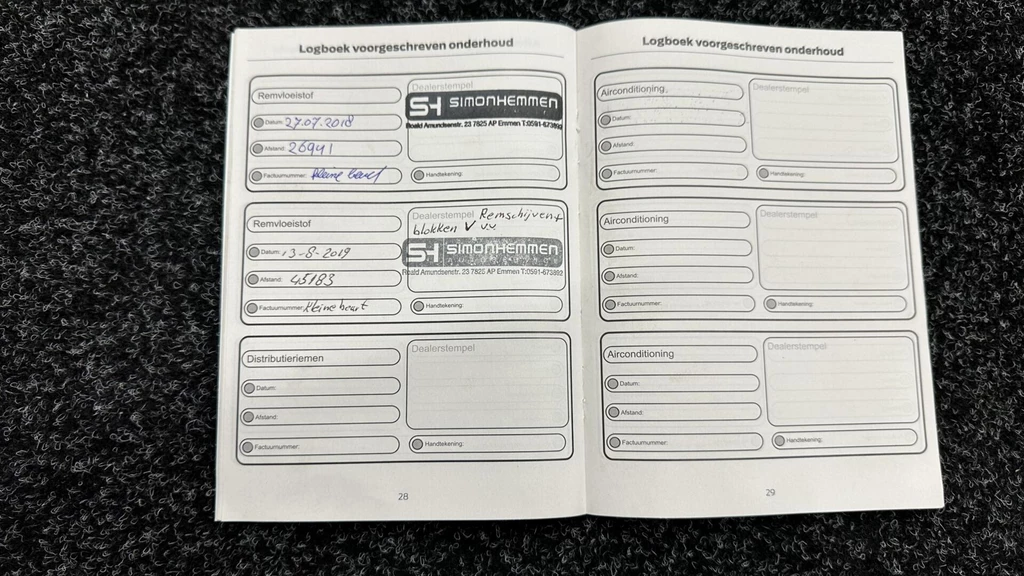 Logboek voorgeschreven onderhoud
Remvloeistof
Datum: 27.07.2018
Afstand: 26941
Factuurnummer: kleine beurt
Dealerstempel
SH SIMONHEMMEN
Roald Amundsenstr. 23 7825 AP Emmen T:0591-673892
Handtekening:
Remvloeistof
Datum: 13-8-2019
Afstand: 45183
Factuurnummer: kleine beurt
Dealerstempel Remschijven+
blokken V vv
SH SIMONHEMMEN
Roald Amundsenstr. 23 7825 AP Emmen T:0591-673892
Handtekening:
Distributieriemen
Datum:
Afstand:
Factuurnummer:
Dealerstempel
Handtekening:
28
Logboek voorgeschreven onderhoud
Airconditioning
Datum:
Afstand:
Factuurnummer:
Dealerstempel
Handtekening:
Airconditioning
Datum:
Afstand:
Factuurnummer:
Dealerstempel
Handtekening:
Airconditioning
Datum:
Afstand:
Factuurnummer:
Dealerstempel
Handtekening:
29